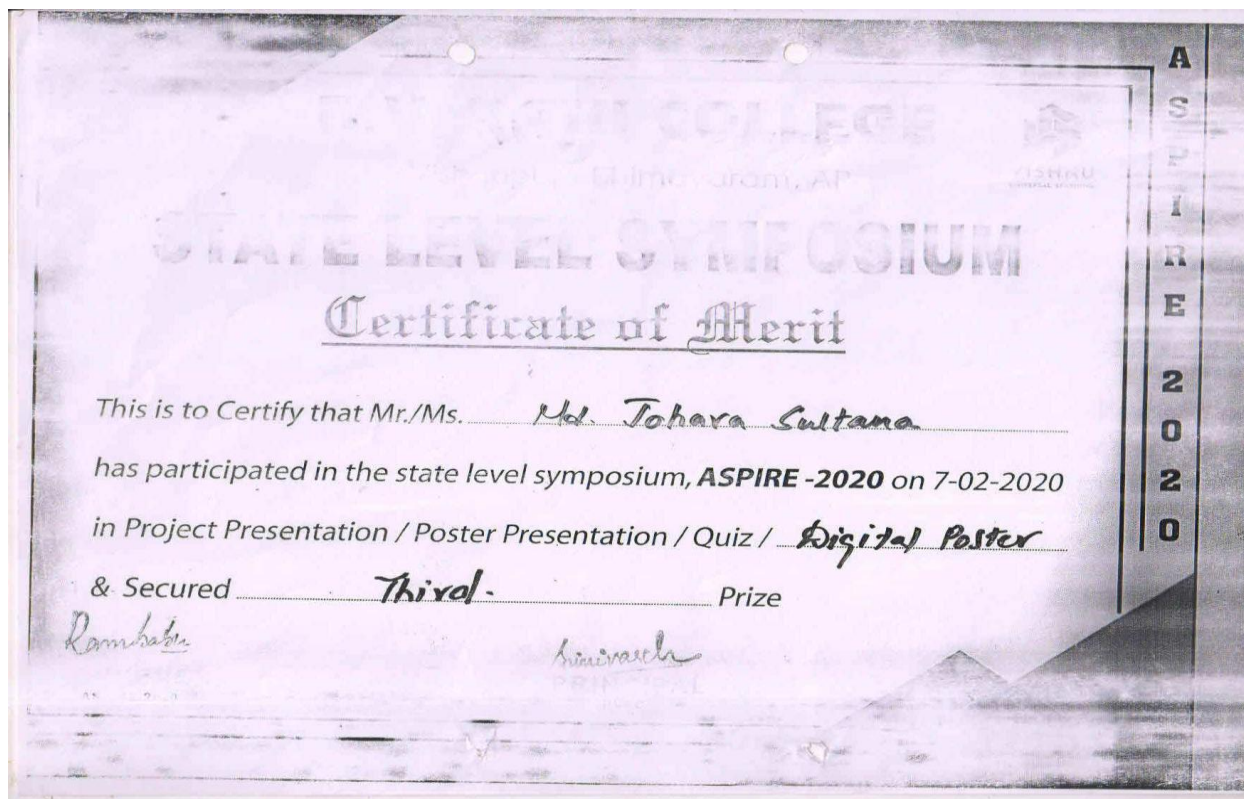 COLLEGE
STATE LEVEL SYMPOSIUM
Certificate of Merit
This is to Certify that Mr./Ms. Md. Johara Sultana
has participated in the state level symposium, ASPIRE -2020 on 7-02-2020
in Project Presentation / Poster Presentation / Quiz / Digital Poster
& Secured Third. Prize
Rambabu
ASPIRE 2020